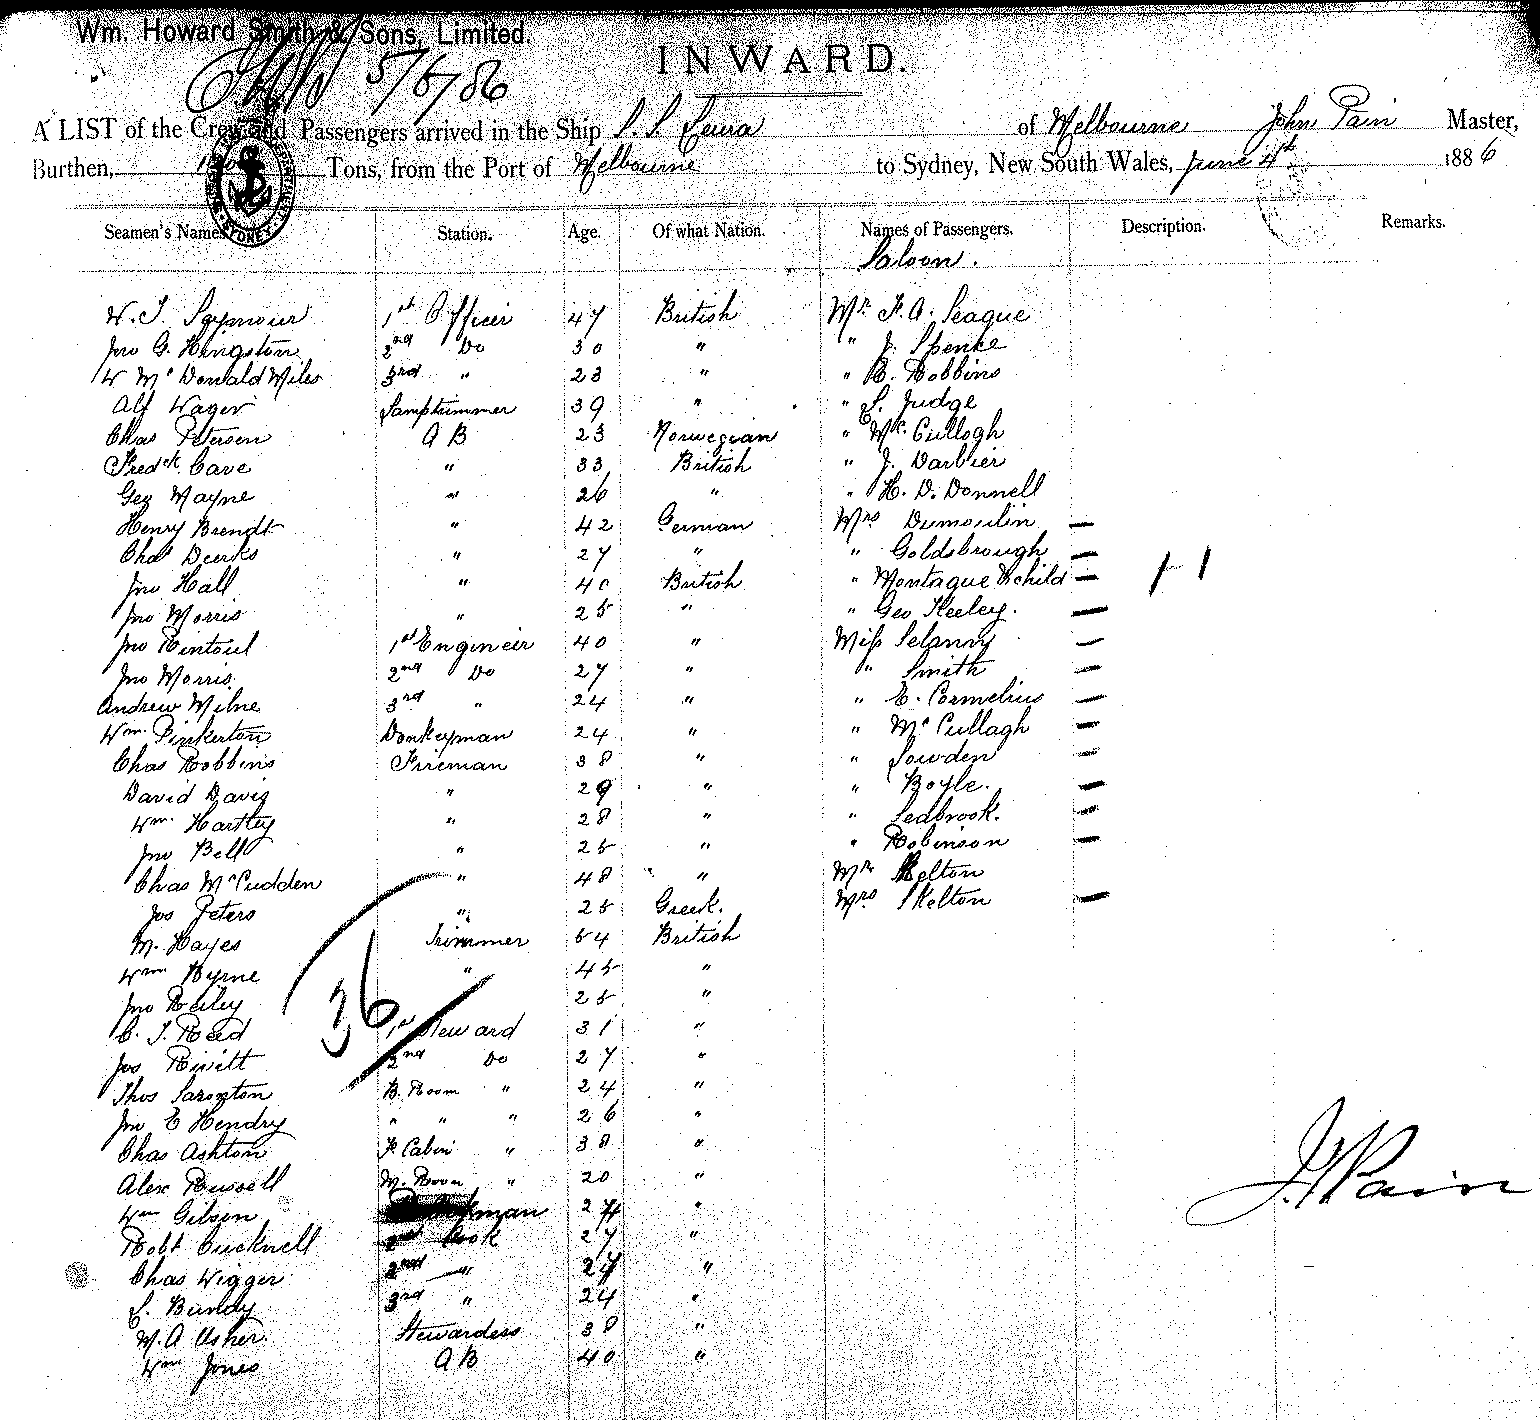 Wm. Howard Smith & Sons, Limited.
INWARD.
5/6/86
A LIST of the Crew and Passengers arrived in the Ship S. S. of Melbourne John Pain Master,
Burthen, Tons, from the Port of Melbourne to Sydney, New South Wales, June 4th 1886
Seamen's Names. Station. Age. Of what Nation. Names of Passengers. Description. Remarks.
Saloon.
W. T. Seymour 1st Officer 47 British Mr. F. A. League
Jno G. Hingston 2nd Do 30 " " J. Spence
W Mc Donald Miles 3rd " 23 " " R. Robbins
Alf Wager Lamptrimmer 39 " " S. Judge
Chas Petersen A B 23 Norwegian " Mc Cullogh
Fredck Cave " 33 British " J. Darbier
Geo Wayne " 26 " " H. D. Donnell
Henry Brendt " 42 German Mrs Dumoulin —
Chas Deerks " 27 " " Goldsbrough —
Jno Hall " 40 British " Montague & child — 1
Jno Morris " 25 " " Geo Keeley. —
Jno Rintoul 1st Engineer 40 " Miss —
Jno Morris 2nd Do 27 " " Smith —
Andrew Milne 3rd " 24 " " E. Cornelius —
Wm. Pinkerton Donkeyman 24 " " Mc Cullagh —
Chas Robbins Fireman 38 " " Sowden —
David Davis " 29 " " Boyle. —
Wm. Hartley " 28 " " Sedbrook. —
Jno Bell " 25 " " Robinson —
Chas McCudden " 48 " " Mr Skelton
Jos Peters " 25 Greek. Mrs Skelton —
M. Hayes Trimmer 54 British
Wm Byrne " 45 "
Jno Reiley 25 "
36
C. T. Reed 1st Steward 31 "
Jos Rivett 2nd Do 27 "
Thos B. Room " 24 "
Jno E Hendry " " " 26 "
Chas Ashton F Cabin " 38 "
Alex Russell M. Room " 20 "
J. Pain
Wm Gibson 24 "
Robt Cucknell 2nd Cook 27 "
Chas Wigger 2nd " 27 "
S. Bundy 3rd " 24 "
M. A Usher. Stewardess 38 "
Wm Jones A B 40 "